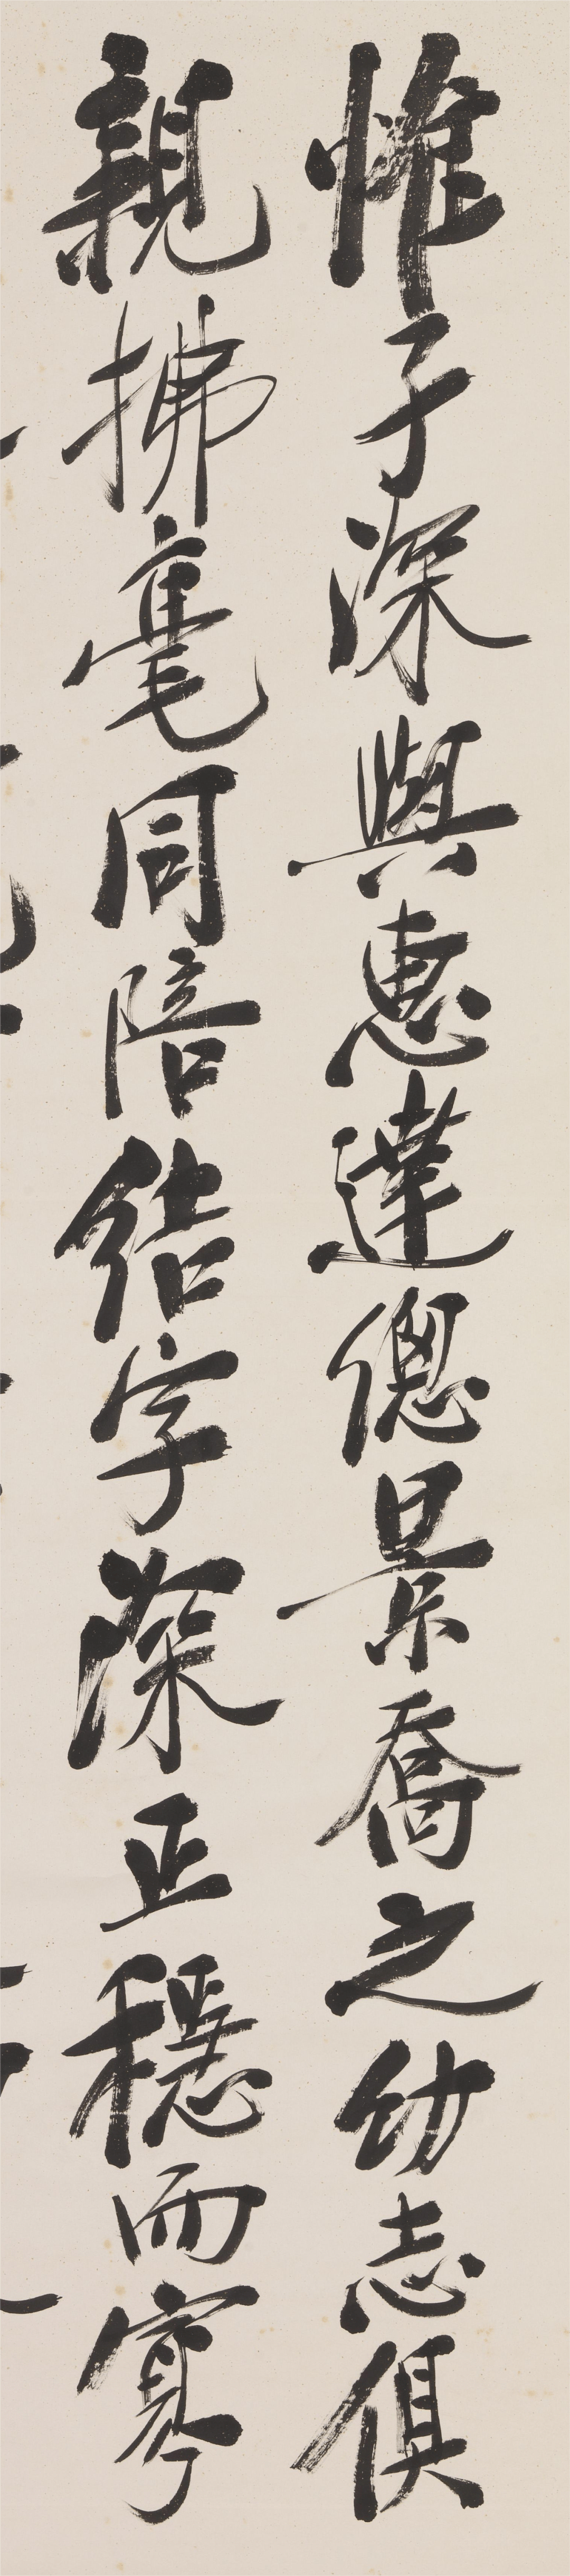 惟子深與惠達傯景喬之幼志俱
親拂毫同陪結字深正穩而寡